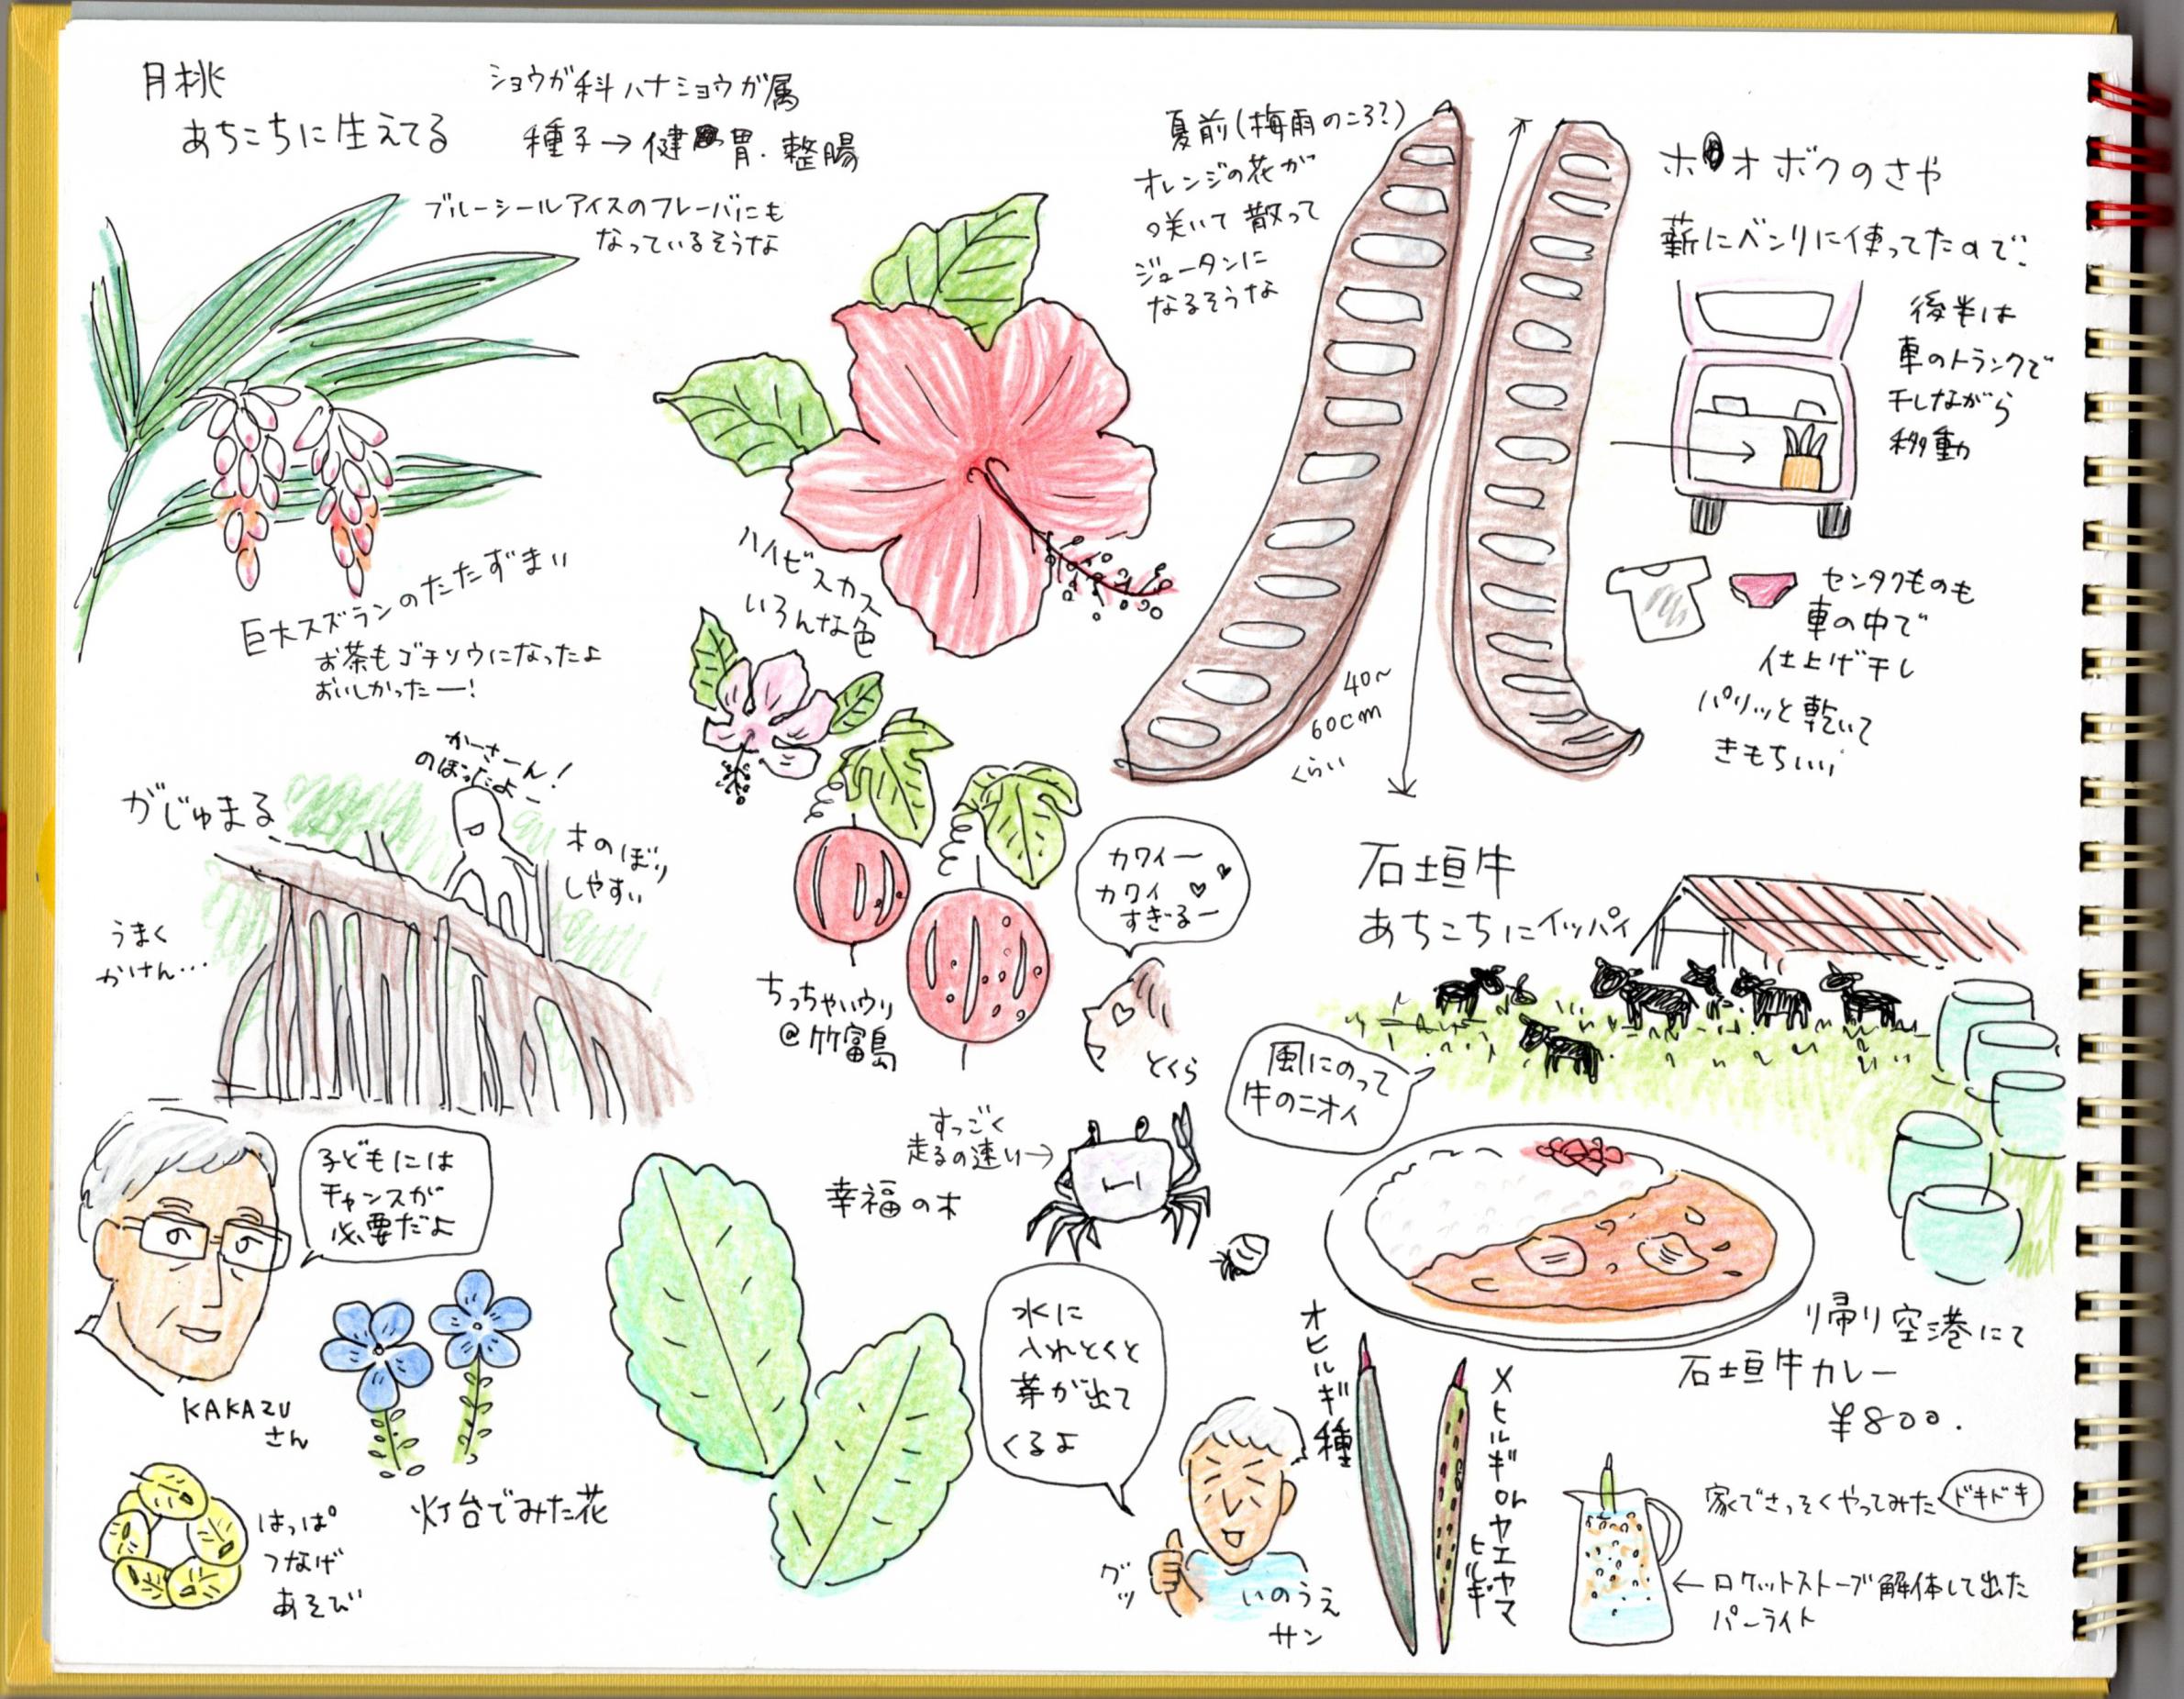 月桃
あちこちに生えてる
ショウガ科ハナショウガ属
種子→健胃.整腸
ブルーシールアイスのフレーバにも
なっているそうな
巨大スズランのたたずまい
お茶もゴチソウになったよ
おいしかったー!
ハイビスカス
いろんな色
夏前(梅雨のころ?)
オレンジの花が
咲いて散って
ジュータンに
なるそうな
40~
60cm
くらい
ホオボクのさや
薪にベンリに使ってたので
後半は
車のトランクで
干しながら
移動
センタクものも
車の中で
仕上げ干し
パリッと乾いて
きもちいい
がじゅまる
かーさーん!
のぼったよー
木のぼり
しやすい
うまく
かけん…
ちっちゃいウリ
@竹富島
カワイー
カワイ
すぎるー
とくら
石垣牛
あちこちにイッパイ
風にのって
牛のニオイ
子どもには
チャンスが
必要だよ
KAKAZU
さん
灯台でみた花
はっぱ
つなげ
あそび
すっごく
走るの速い→
幸福の木
水に
入れとくと
芽が出て
くるよ
グッ
いのうえ
サン
オヒルギ種
メヒルギorヤエヤマ
ヒルギ
帰り空港にて
石垣牛カレー
¥800.
家でさっそくやってみた
ドキドキ
←ロケットストーブ解体して出た
パーライト